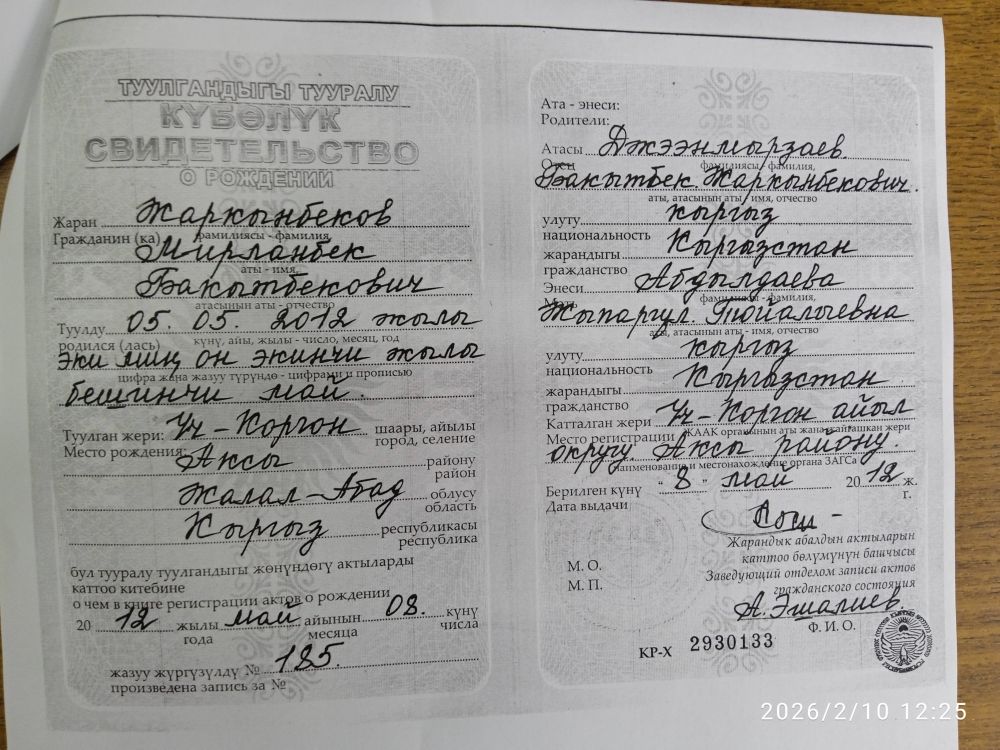 ТУУЛГАНДЫГЫ ТУУРАЛУ
КҮБӨЛҮК
СВИДЕТЕЛЬСТВО
О РОЖДЕНИИ
Жаран Жаркынбеков
Гражданин (ка) фамилиясы - фамилия,
Мирланбек
аты - имя,
Бакытбекович
атасынын аты - отчество
Туулду 05. 05. 2012 жылы
родился (лась) күнү, айы, жылы - число, месяц, год
эки миң он экинчи жылы
цифра жана жазуу түрүндө - цифрами и прописью
бешинчи май.
Туулган жери: Үч-Коргон шаары, айылы
Место рождения: город, селение
Аксы району
район
Жалал-Абад облусу
область
Кыргыз республикасы
республика
бул тууралу туулгандыгы жөнүндөгү актыларды
каттоо китебине
о чем в книге регистрации актов о рождении
20 12 жылы май айынын 08. күнү
года месяца числа
жазуу жүргүзүлдү № 185.
произведена запись за №
Ата - энеси:
Родители:
Атасы Джээнмырзаев.
Отец фамилиясы - фамилия,
Бакытбек Жаркынбекович.
аты, атасынын аты - имя, отчество
улуту кыргыз
национальность
жарандыгы Кыргызстан
гражданство
Энеси Абдылдаева
Мать фамилиясы - фамилия,
Жыпаргул Тойалыевна
аты, атасынын аты - имя, отчество
улуту кыргыз
национальность
жарандыгы Кыргызстан
гражданство
Катталган жери Үч-Коргон айыл
Место регистрации ЖААК органынын аты жана жайгашкан жери
округу. Аксы району.
наименование и местонахождение органа ЗАГСа
Берилген күнү "8" май 20 12 ж.
Дата выдачи г.
Жарандык абалдын актыларын
каттоо бөлүмүнүн башчысы
М. О.
Заведующий отделом записи актов
М. П.
гражданского состояния
А. Эшалиев
Ф. И. О.
КР-Х 2930133
2026/2/10 12:25